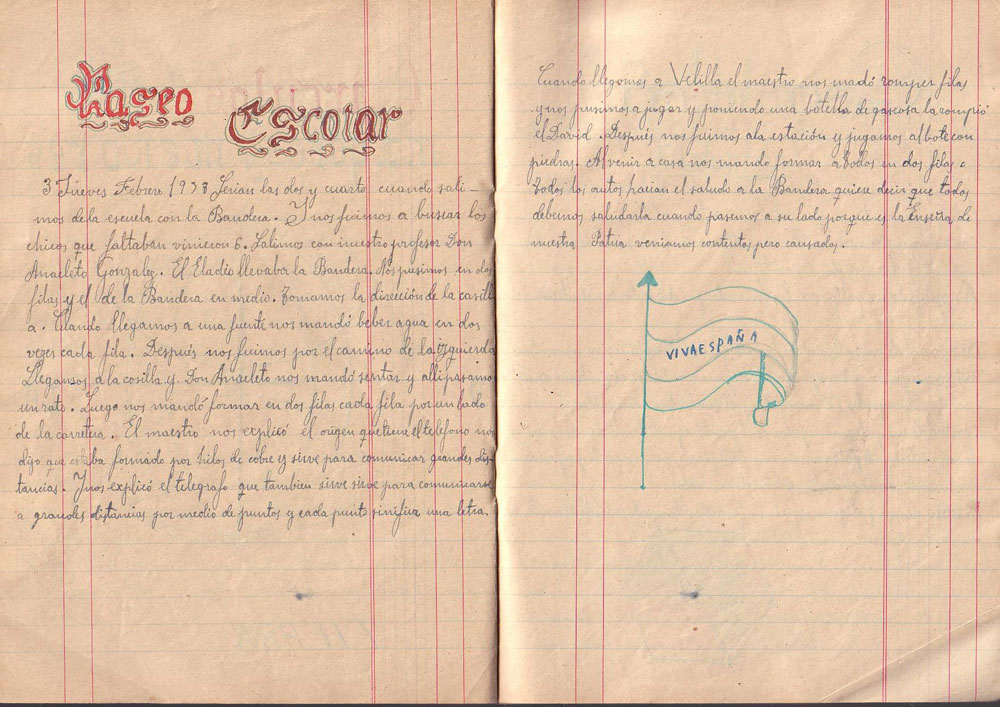 Paseo
Escolar
3 Jueves Febrero 1938 Serian las dos y cuarto cuando sali-
mos de la escuela con la Bandera. Y nos fuimos a buscar los
chicos que faltaban vinieron 6. Salimos con nuestro profesor Don
Anacleto Gonzalez. El Eladio llevaba la Bandera. Nos pusimos en dos
filas y el de la Bandera en medio. Tomamos la dirección de la casill
a. Cuando llegamos a una fuente nos mandó beber agua en dos
vezes cada fila. Después nos fuimos por el camino de la izquierda
Llegamos a la cosilla y. Don Anacleto nos mandó sentar y alli pasamo
un rato. Luego nos mandó formar en dos filas cada fila por un lado
de la carretera. El maestro nos explicó el origen que tiene el telefono nos
dijo que estaba formado por hilos de cobre y sirve para comunicar grandes dis-
tancias. Y nos explicó el telegrafo que tambien sirve sirve para comunicarse
a grandes distancias por medio de puntos y cada punto sinifica una letra.
Cuando llegomos a Velilla el maestro nos madó romper filas
y nos pusimos a jugar y poniendo una botella de gaseosa la rompió
el David. Después nos fuimos ala estación y jugamos al bote con
piedras. Al venir a casa nos mando formar a todos en dos filas a
todos los autos hacian el saludo a la Bandera quiere decir que todos
debemos saludarla cuando pasemos a su lado porque es la Enseña de
nuestra Patria veniamos contentos pero cansados.
VIVA ESPAÑA